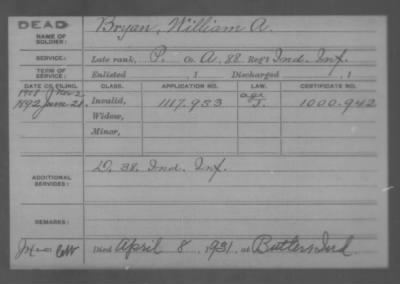 DEAD
NAME OF SOLDIER: Bryan, William A.
SERVICE: Late rank, P. Co. A. 88 Reg't Ind. Inf.
TERM OF SERVICE: Enlisted , 1 Discharged , 1
DATE OF FILING. CLASS. APPLICATION NO. LAW. CERTIFICATE NO.
1892 June 21 Invalid, 1117.953 age 1000.942
Widow,
Minor,
ADDITIONAL SERVICES: D. 38. Ind. Inf.
REMARKS:
Died April 8, 1931, at